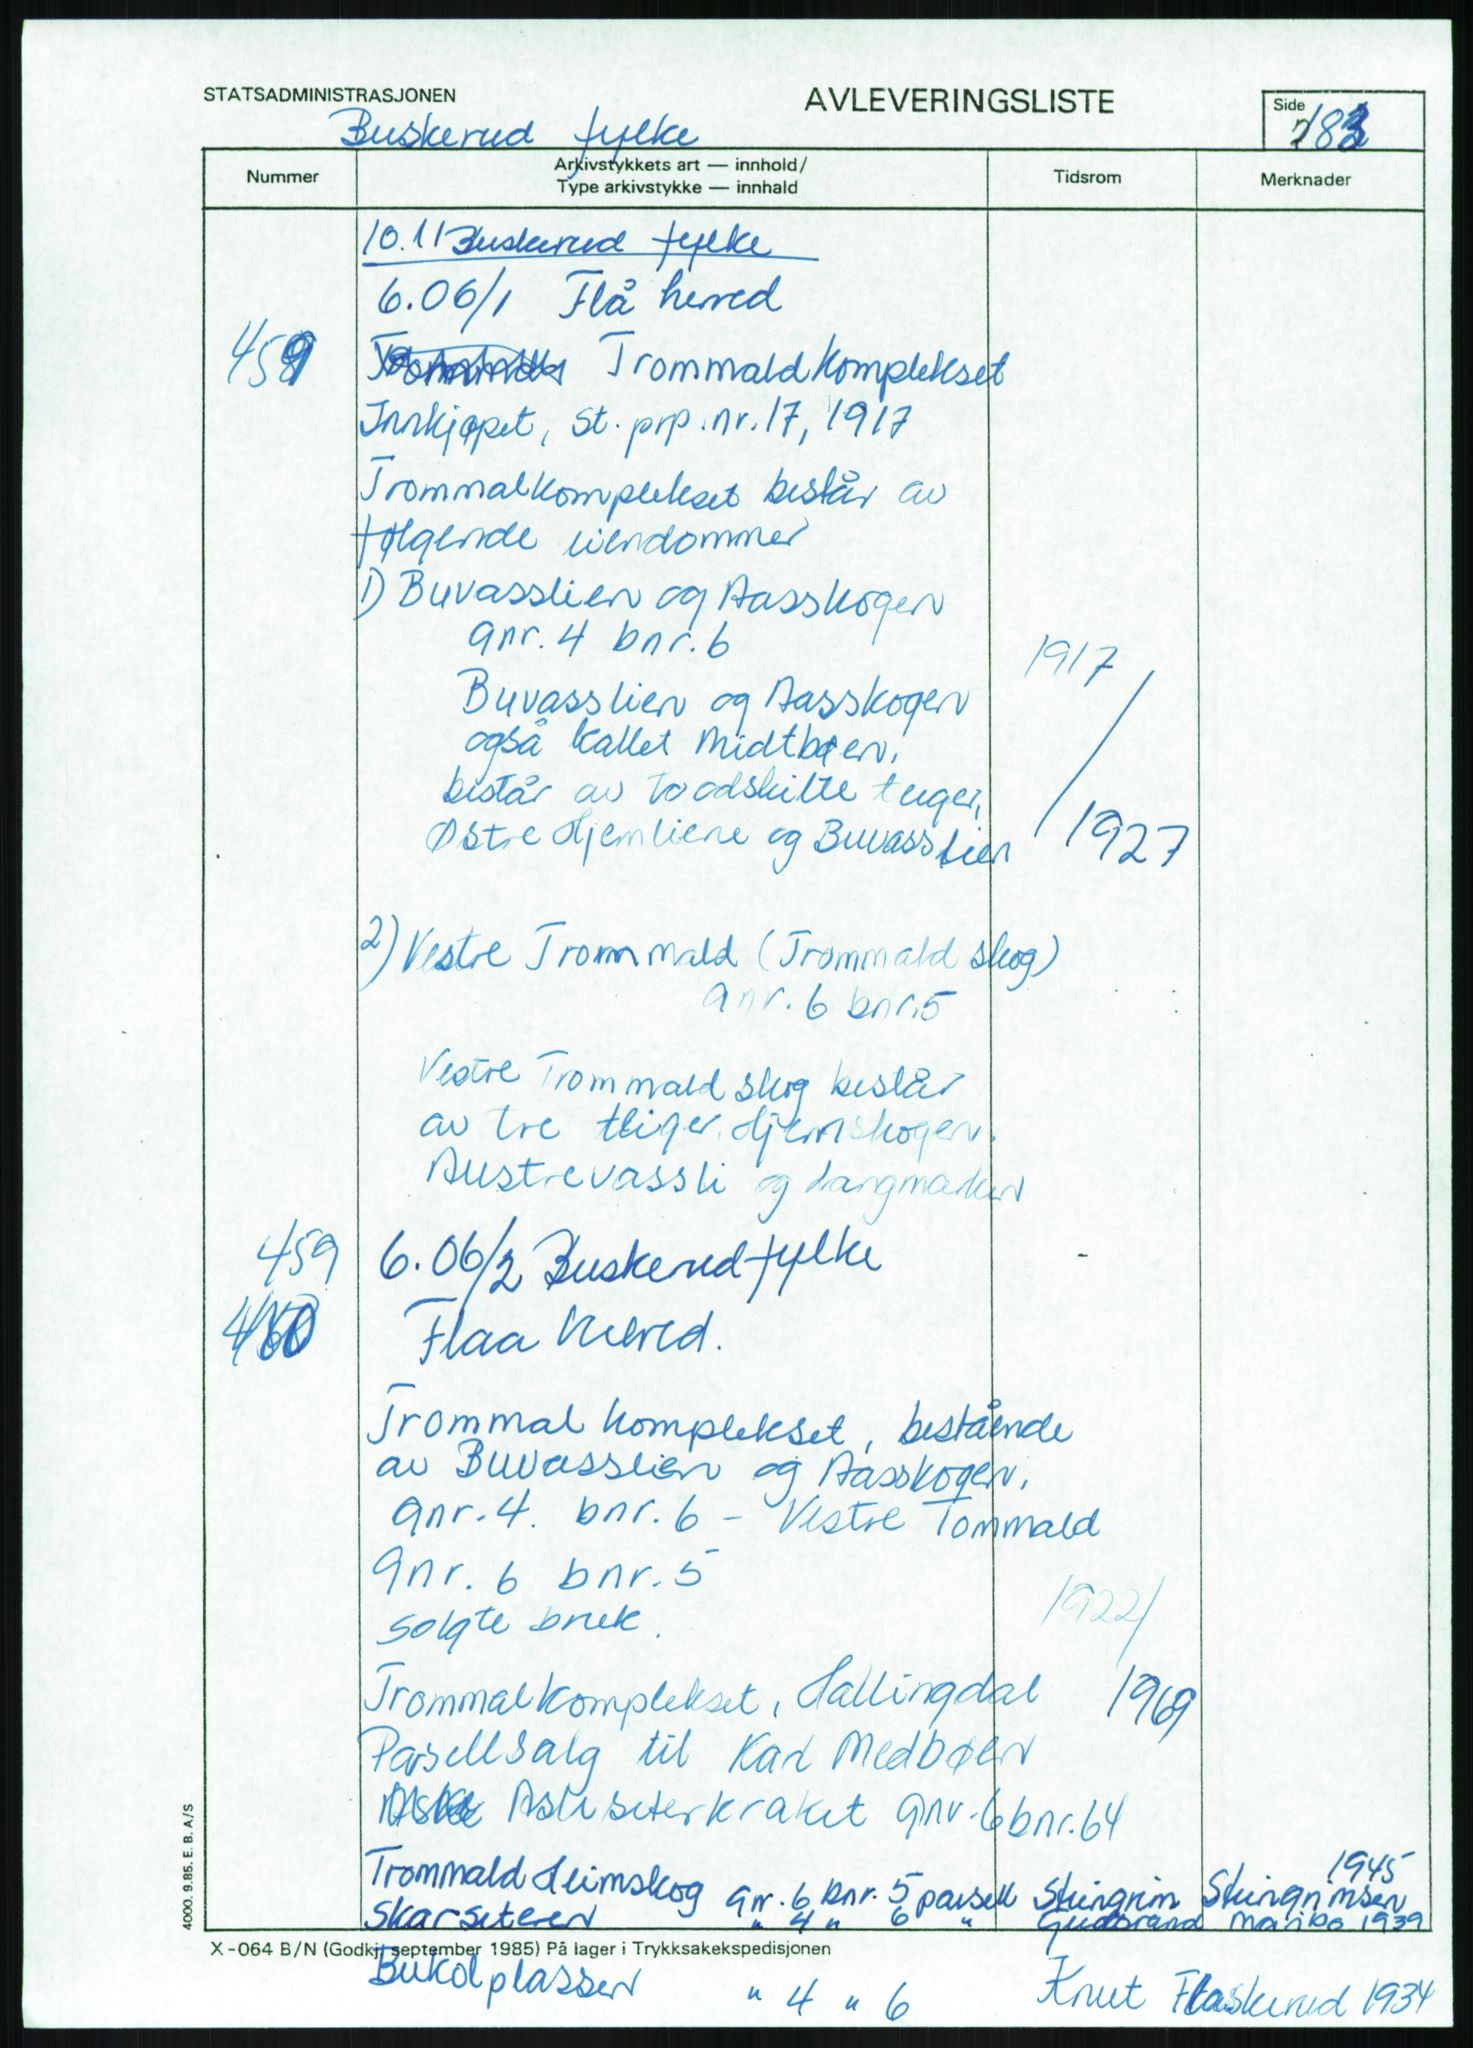 STATSADMINISTRASJONEN
AVLEVERINGSLISTE
Side 183
Buskerud fylke
Nummer
Arkivstykkets art — innhold/
Type arkivstykke — innhald
Tidsrom
Merknader
10.11 Buskerud fylke
6.06/1 Flå herred
459 Trommaldkomplekset
Innkjøpet, st. prp. nr. 17, 1917
Trommalkomplekset består av
følgende eiendommer
1) Buvasslien og Aasskogen
gnr. 4 bnr. 6
1917
Buvasslien og Aasskogen
også kallet Midtbøen,
består av to adskilte teiger,
Østre Hjemliene og Buvasslien
/ 1927
2) Vestre Trommald (Trommald skog)
gnr. 6 bnr. 5
Vestre Trommald skog består
av tre teiger, Hjemskogen,
Austrevassli og Langmarken
459 6.06/2 Buskerud fylke
460 Flaa herred.
Trommal komplekset, bestående
av Buvasslien og Aasskogen,
gnr. 4. bnr. 6 - Vestre Tommald
gnr. 6 bnr. 5
solgte bruk.
1922/
Trommalkomplekset, Hallingdal 1969
Parsellsalg til Karl Medbøen
Asliseterkraket gnr. 6 bnr. 64
Trommald Heimskog gnr. 6 bnr. 5 parsell Steingrim Steingrimsen 1945
Skarseteren " 4 " 6 " Gudbrand Maribo 1939
4000. 9.85. E. B. A/S
X-064 B/N (Godkj. september 1985) På lager i Trykksakekspedisjonen
Bukolplassen " 4 " 6 Knut Flaskerud 1934